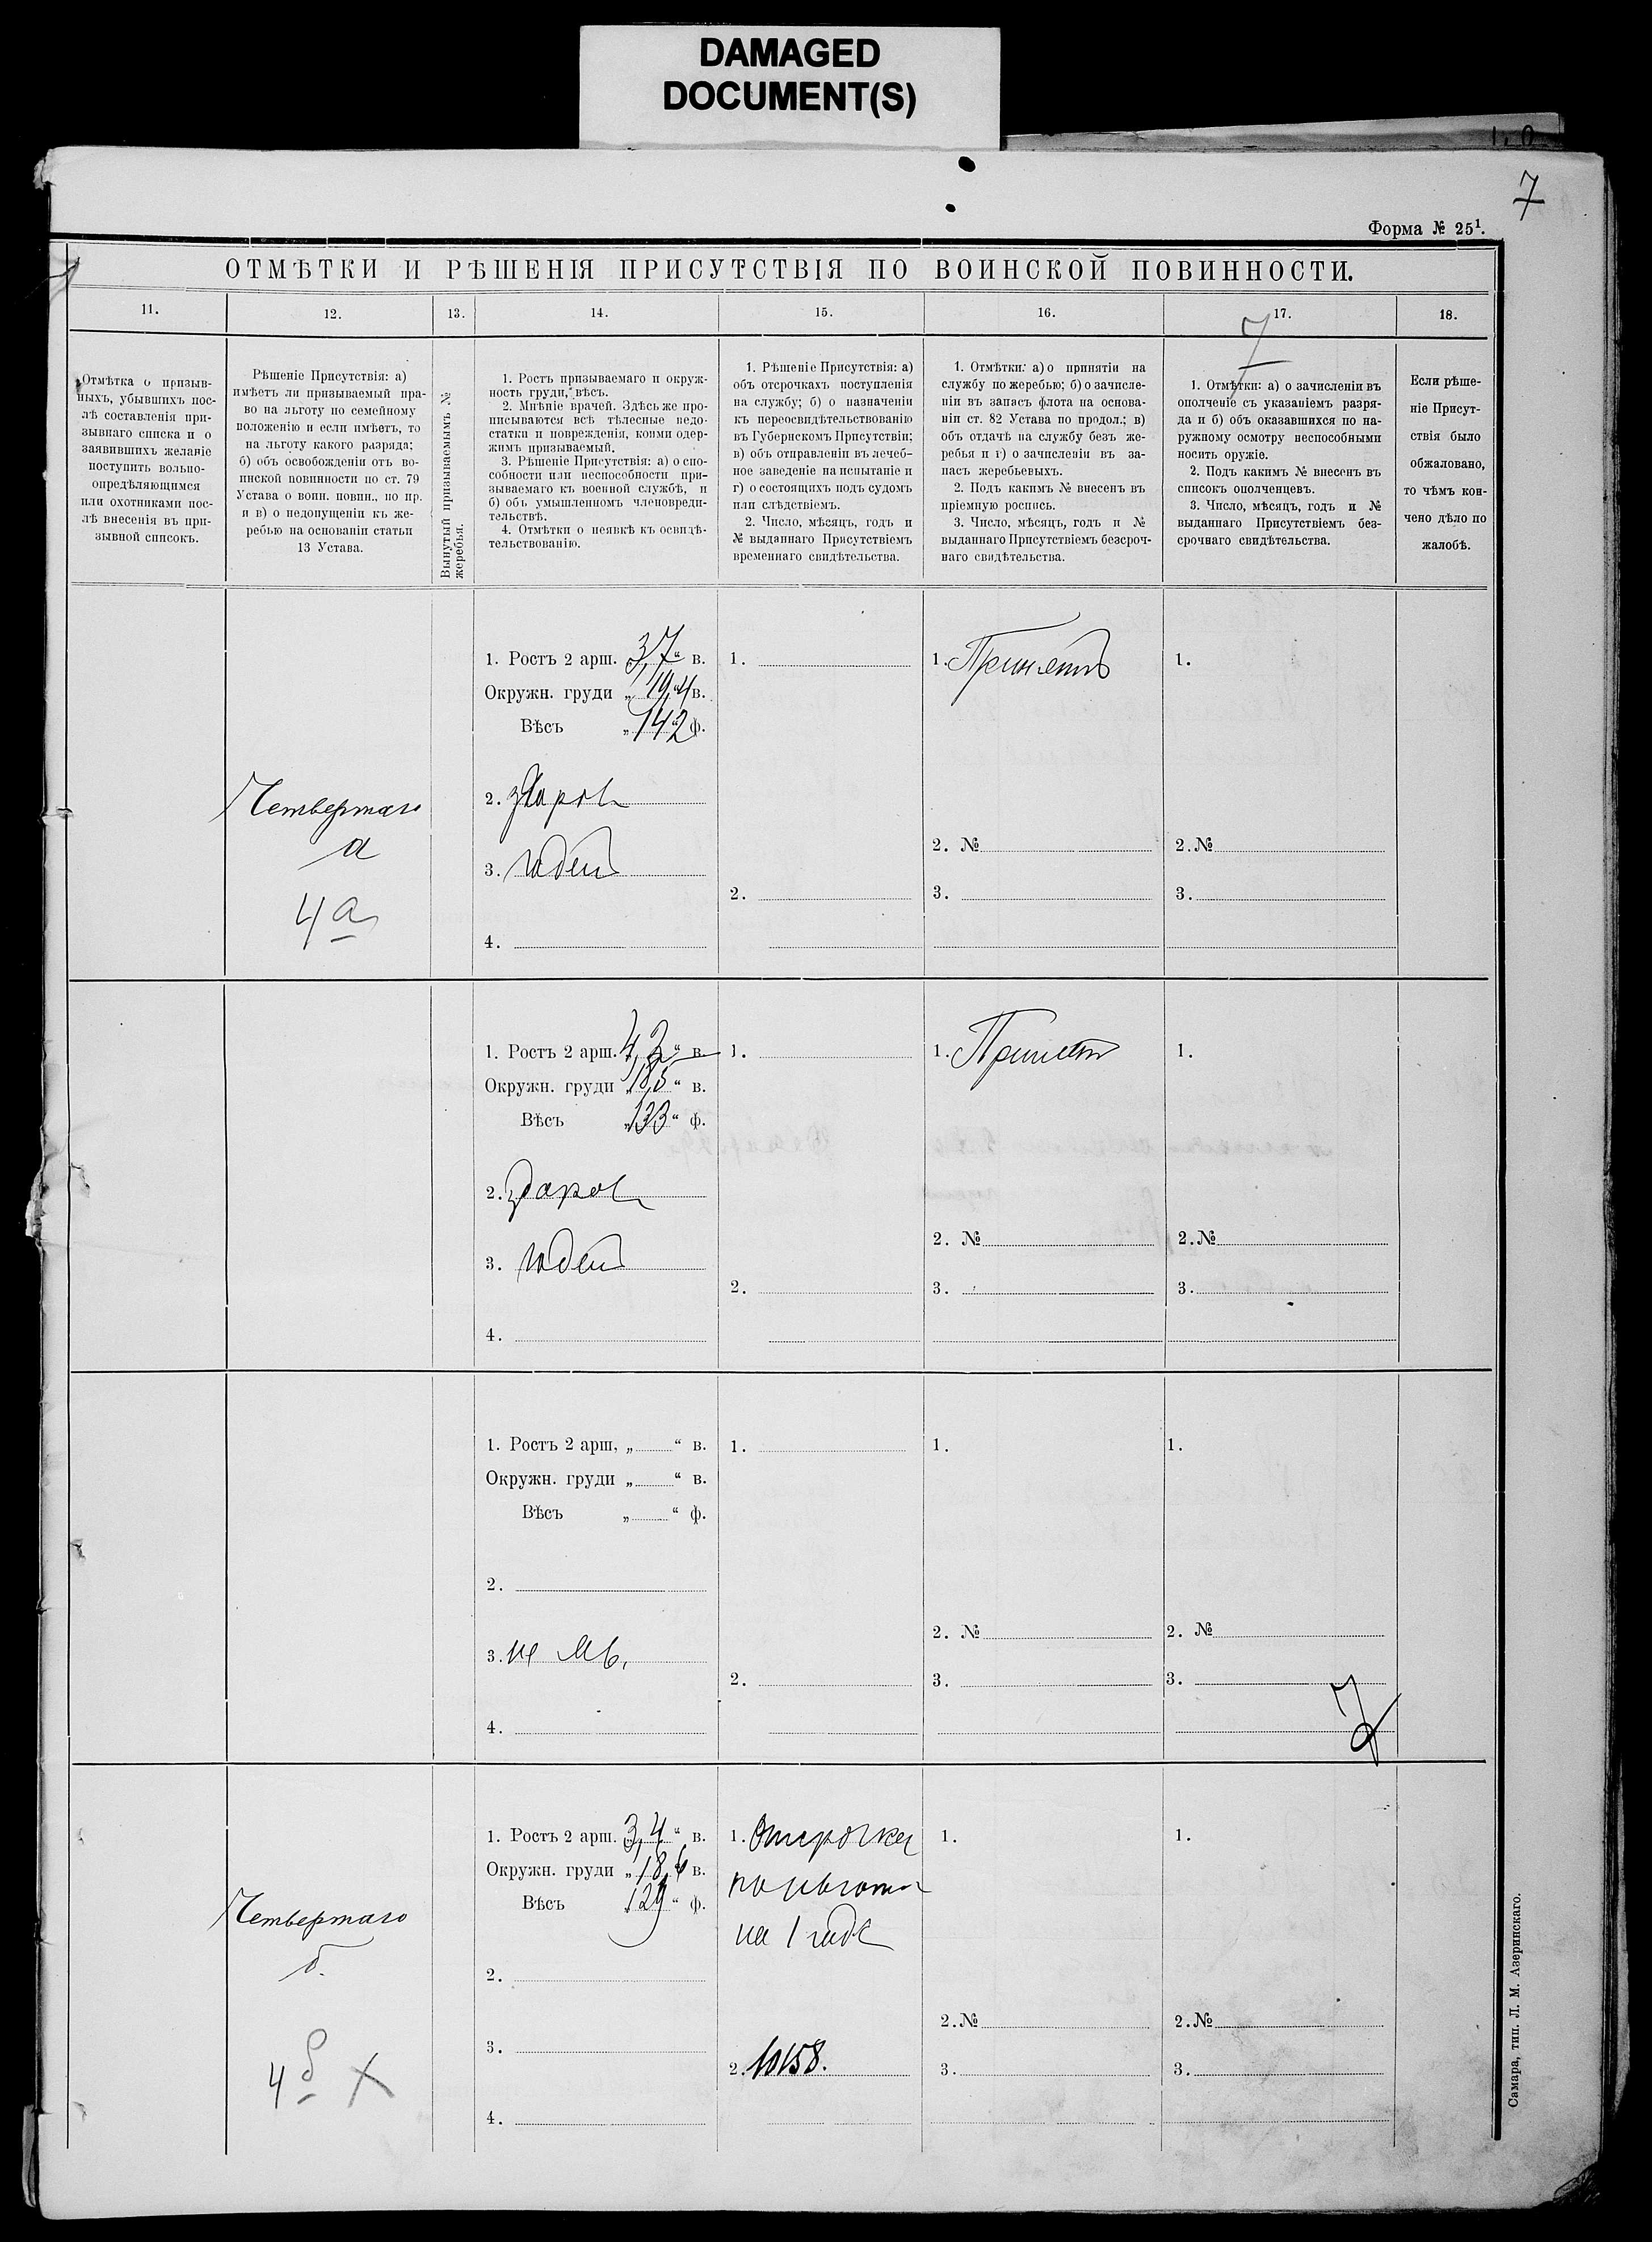 DAMAGED
DOCUMENT(S)
7
Форма № 25¹.
ОТМѢТКИ И РѢШЕНІЯ ПРИСУТСТВІЯ ПО ВОИНСКОЙ ПОВИННОСТИ.
11.
12.
13.
14.
15.
16.
17.
18.
7
Отмѣтка о призыв-
ныхъ, убывшихъ пос-
лѣ составленія при-
зывнаго списка и о
заявившихъ желаніе
поступить вольно-
опредѣляющимся
или охотниками пос-
лѣ внесенія въ при-
зывной списокъ.
Рѣшеніе Присутствія: а)
имѣетъ ли призываемый пра-
во на льготу по семейному
положенію и если имѣетъ, то
на льготу какого разряда;
б) объ освобожденіи отъ во-
инской повинности по ст. 79
Устава о воин. повин., по пр.
и в) о недопущеніи къ же-
ребью на основаніи статьи
13 Устава.
Вынутый призываемымъ №
жеребья.
1. Ростъ призываемаго и окруж-
ность груди, вѣсъ.
2. Мнѣніе врачей. Здѣсь же про-
писываются всѣ тѣлесные недо-
статки и поврежденія, коими одер-
жимъ призываемый.
3. Рѣшеніе Присутствія: а) о спо-
собности или неспособности при-
зываемаго къ военной службѣ, и
б) объ умышленномъ членовреди-
тельствѣ.
4. Отмѣтки о неявкѣ къ освидѣ-
тельствованію.
1. Рѣшеніе Присутствія: а)
объ отсрочкахъ поступленія
на службу; б) о назначеніи
къ переосвидѣтельствованію
въ Губернскомъ Присутствіи;
в) объ отправленіи въ лечеб-
ное заведеніе на испытаніе и
г) о состоящихъ подъ судомъ
или слѣдствіемъ.
2. Число, мѣсяцъ, годъ и
№ выданнаго Присутствіемъ
временнаго свидѣтельства.
1. Отмѣтки: а) о принятіи на
службу по жеребью; б) о зачисле-
ніи въ запасъ флота на основа-
ніи ст. 82 Устава по продол.; в)
объ отдачѣ на службу безъ же-
ребья и г) о зачисленіи въ за-
пасъ жеребьевыхъ.
2. Подъ какимъ № внесенъ въ
пріемную роспись.
3. Число, мѣсяцъ, годъ и №
выданнаго Присутствіемъ безсроч-
наго свидѣтельства.
1. Отмѣтки: а) о зачисленіи въ
ополченіе съ указаніемъ разря-
да и б) объ оказавшихся по на-
ружному осмотру неспособными
носить оружіе.
2. Подъ какимъ № внесенъ въ
списокъ ополченцевъ.
3. Число, мѣсяцъ, годъ и №
выданнаго Присутствіемъ без-
срочнаго свидѣтельства.
Если рѣше-
ніе Присут-
ствія было
обжаловано,
то чѣмъ кон-
чено дѣло по
жалобѣ.
Четвертаго
а
4 а
1. Ростъ 2 арш. „3,7“ в.
Окружн. груди „19,4 в.
Вѣсъ „142 ф.
2. здоров
3. годен
4.
1.
2.
1. Принятъ
2. №
3.
1.
2. №
3.
1. Ростъ 2 арш. 4,2“ в.
Окружн. груди „18,5“ в.
Вѣсъ „133“ ф.
2. здоров
3. годен
4.
1.
2.
1. Принят
2. №
3.
1.
2. №
3.
1. Ростъ 2 арш. „ “ в.
Окружн. груди „ “ в.
Вѣсъ „ “ ф.
2.
3. не яв.
4.
1.
2.
1.
2. №
3.
1.
2. №
3.
Четвертаго
б.
4 б X
1. Ростъ 2 арш. „3,4“ в.
Окружн. груди „18,6 в.
Вѣсъ „129“ ф.
2.
3.
4.
1. Отсрочка
по льготе
на 1 годъ
2. 10158.
1.
2. №
3.
1.
2. №
3.
Самара, тип. Л. М. Азеринскаго.